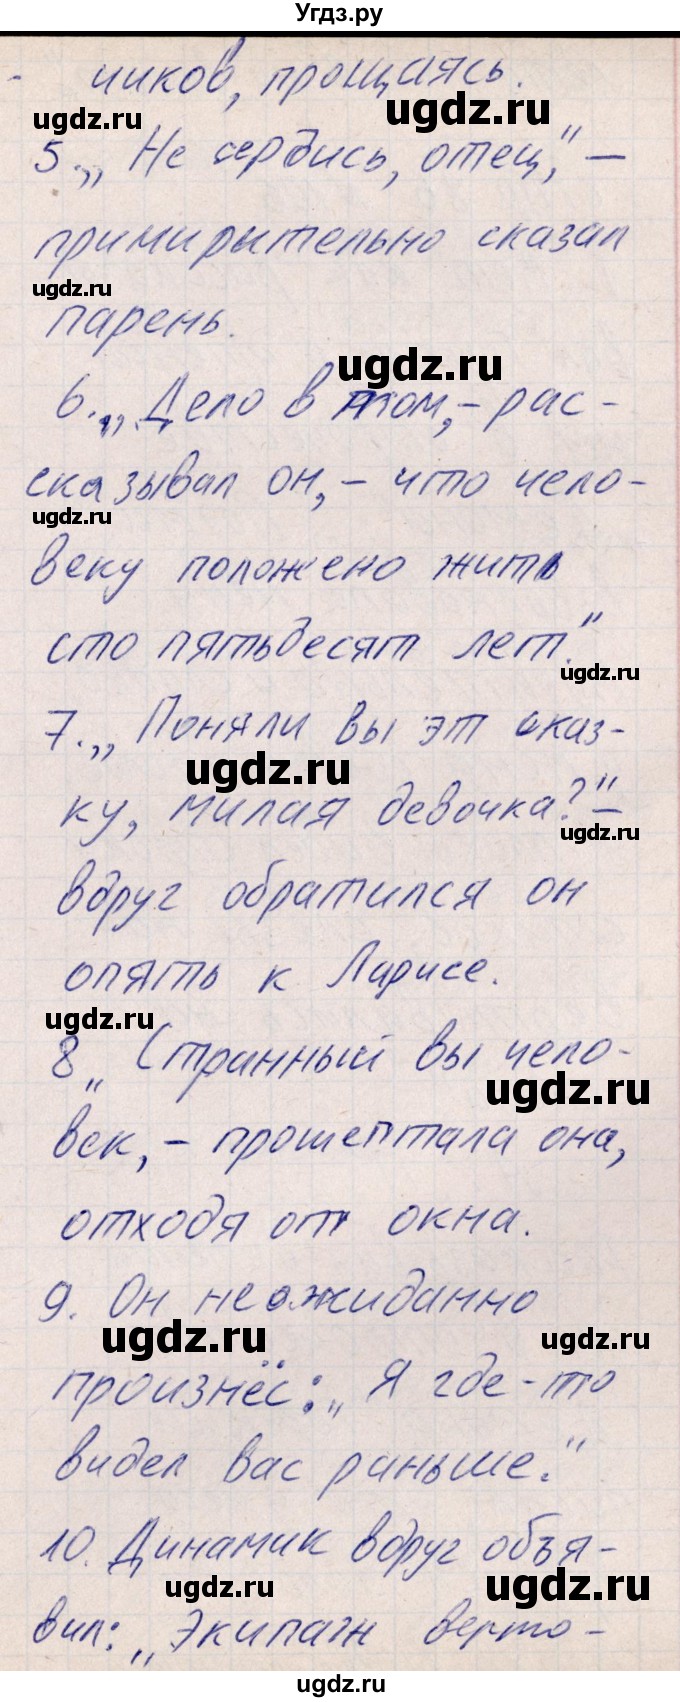 Угдз.ру
чиков, прощаясь.
ugdz.ru
ugdz.ru
5. „Не сердись, отец,“ —
примирительно сказал
ugdz.ru
парень.
ugdz.ru
6. „Дело в том, – рас-
сказывал он, – что чело-
ugdz.ru
веку положено жить
сто пятьдесят лет.“
ugdz.ru
7. „Поняли вы эт сказ-
ugdz.ru
ку, милая девочка?“ –
ugdz.ru
вдруг обратился он
опять к Ларисе.
ugdz.ru
8 „Странный вы чело-
ugdz.ru
век, – прошептала она,
отходя от окна.
9. Он неожиданно
ugdz.ru
ugdz.ru
произнёс: „Я где-то
видел вас раньше.“
10. Динамик вдруг объя-
ugdz.ru
ugdz.ru
вил: „Экипаж верто-
ugdz.ru